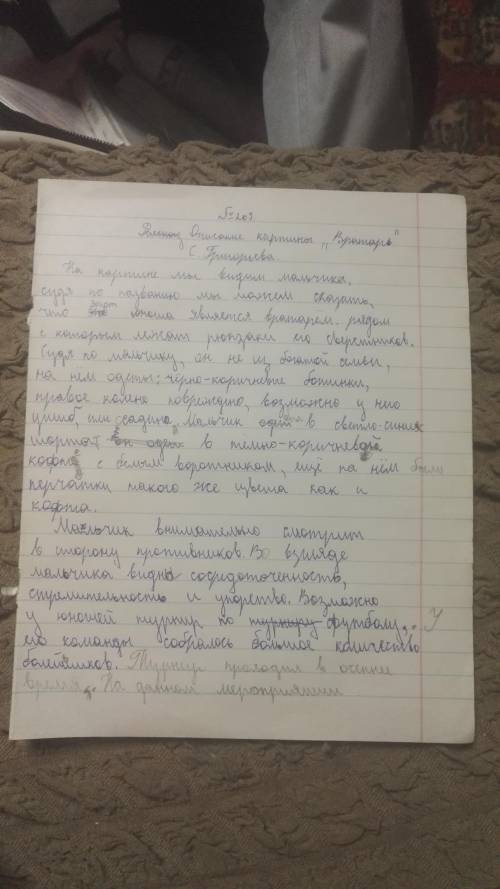 № 209
Описание картины „Вратарь"
С. Григорьева.
На картине мы видим мальчика.
судя по названию мы можем сказать,
что юноша является вратарем. рядом
с которым лежат рюкзаки его сверстников.
Судя по мальчику, он не из богатой семьи,
на нём одеты: чёрно-коричневые ботинки,
правое колено повреждено, возможно у него
ушиб, или ссадина, Мальчик одет в светло-синих
шортах он одет в темно-коричневой
кофте с белым воротником, ещё на нём были
перчатки такого же цвета как и
кофта.
Мальчик внимательно смотрит
в сторону противников. Во взгляде
мальчика видны сосредоточенность,
стремительность и упорство. Возможно
у юношей турнир по турниру футболу. У
его команды собралось большое количество
болейщиков. Турнир проходил в осеннее
время. На данном мероприятии